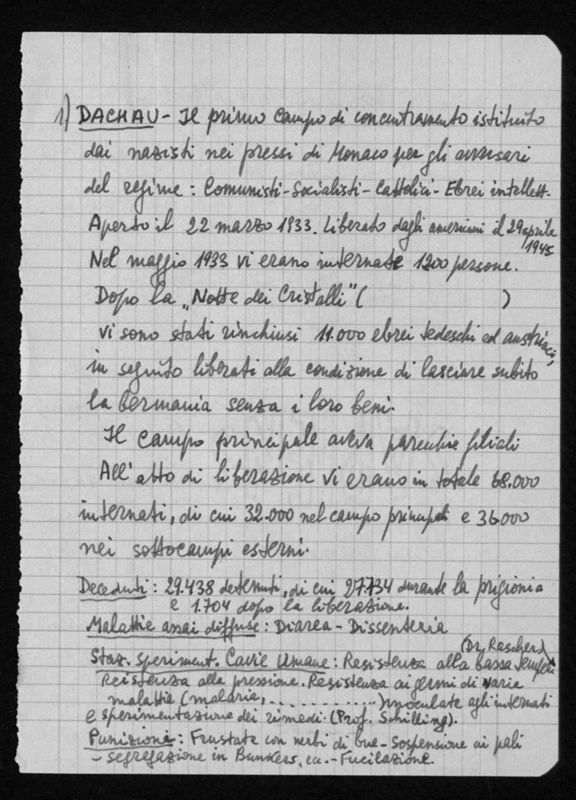 1) DACHAU - Il primo campo di concentramento istituito
dai nazisti nei pressi di Monaco per gli avversari
del regime: Comunisti - Socialisti - Cattolici - Ebrei intellett.
Aperto il 22 marzo 1933. Liberato dagli americani il 29 aprile 1945
Nel maggio 1933 vi erano internate 1200 persone.
Dopo la "Notte dei Cristalli" ( )
vi sono stati rinchiusi 11.000 ebrei tedeschi ed austriaci,
in seguito liberati alla condizione di lasciare subito
la Germania senza i loro beni.
Il campo principale aveva parecchie filiali
All'atto di liberazione vi erano in totale 68.000
internati, di cui 32.000 nel campo principale e 36.000
nei sottocampi esterni.
Deceduti: 29.438 detenuti, di cui 27.734 durante la prigionia
e 1.704 dopo la liberazione.
Malattie assai diffuse: Diarea - Dissenteria
(Dr. Rascher)
Staz. Speriment. Cavie Umane: Resistenza alla bassa temper.
Resistenza alla pressione. Resistenza ai germi di varie
malattie (malaria, ..............) inoculate agli internati
e sperimentazione dei rimedi. (Prof. Schilling).
Punizioni: Frustate con nerbi di bue - Sospensione ai pali
- segregazione in Bunkers, - Fucilazione.